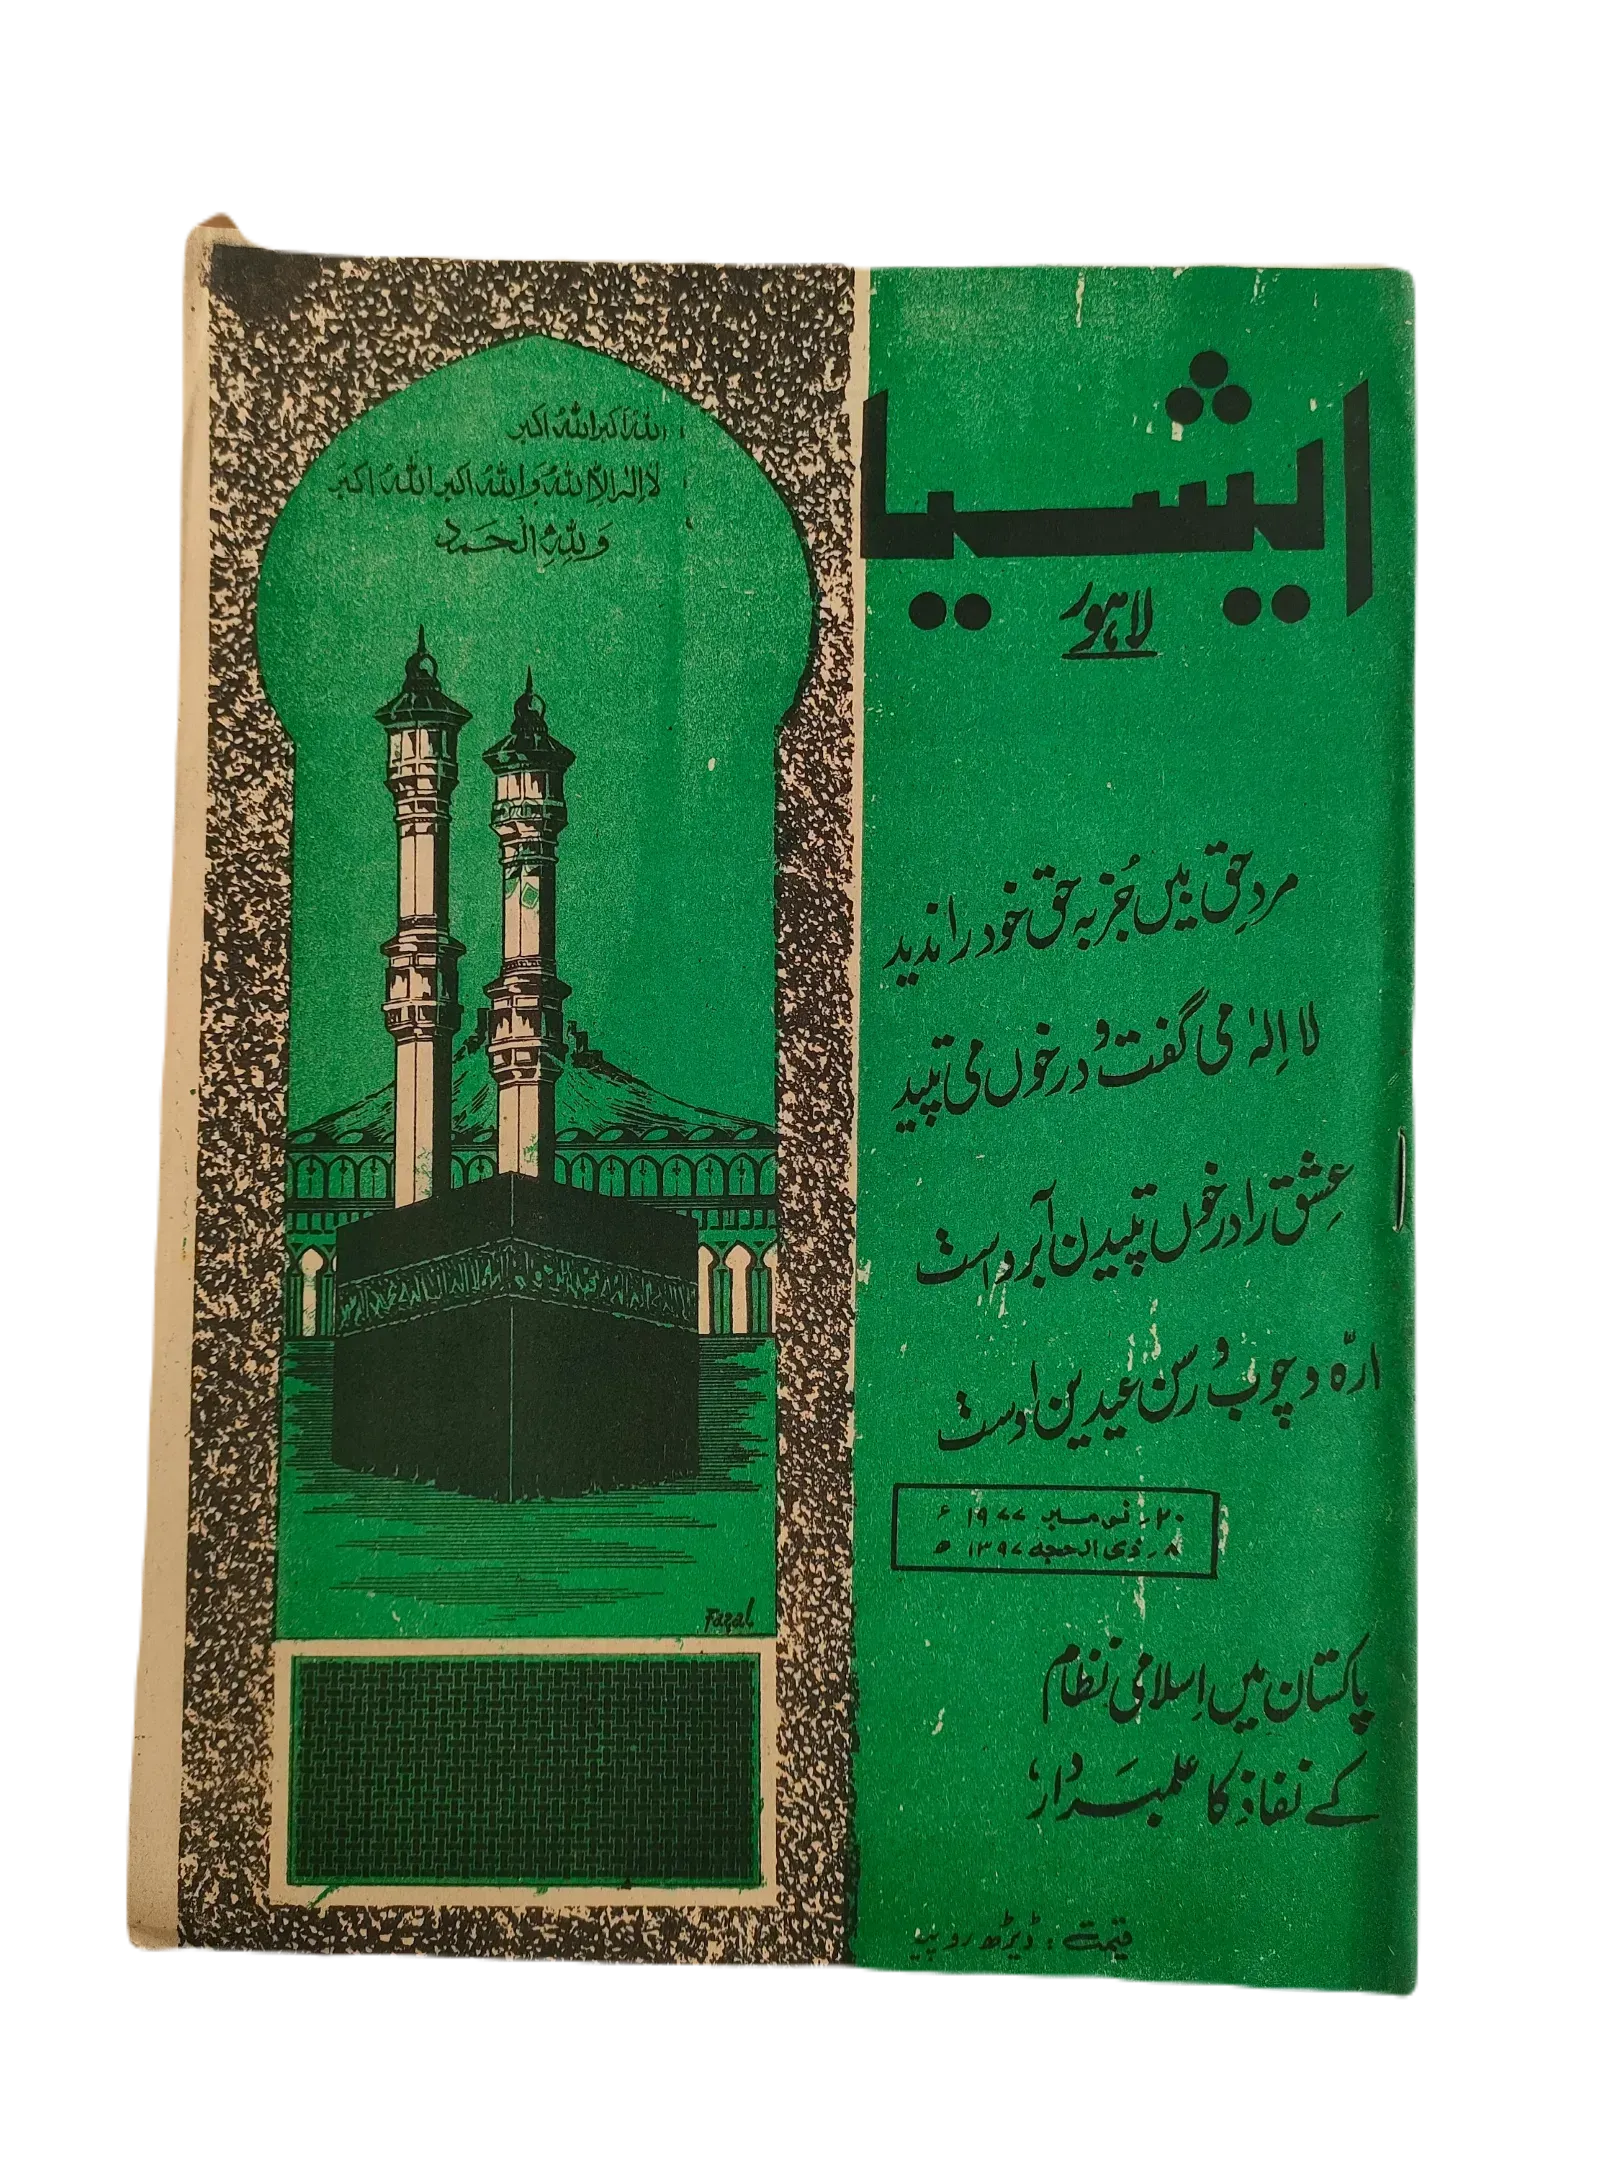 ایشیا
لاہور
اللہُ اکبر اللہُ اکبر
لا الٰہ الّا اللہُ وَ اللہُ اکبر اللہُ اکبر
وَلِلّٰہِ الْحَمد
مردِ حق بیں جُز بہ حق خود را ندید
لا اِلٰہ می گفت و در خوں می تپید
عشق را در خوں تپیدن آبروست
ارّہ و چوب و رسن عیدین اوست
۲۰ر نومبر ۱۹۷۷ ء
۸ر ذی الحجہ ۱۳۹۷ ھ
پاکستان میں اِسلامی نظام
کے نفاذ کا علمبَردار،
قیمت : ڈیڑھ روپیہ
Fazal